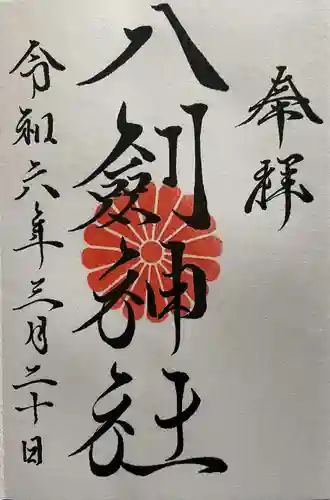 奉拝
八剱神社
令和六年三月二十日